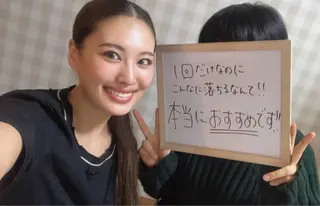 1回だけなのに
こんなに落ちるなんて!!
本当におすすめです!!